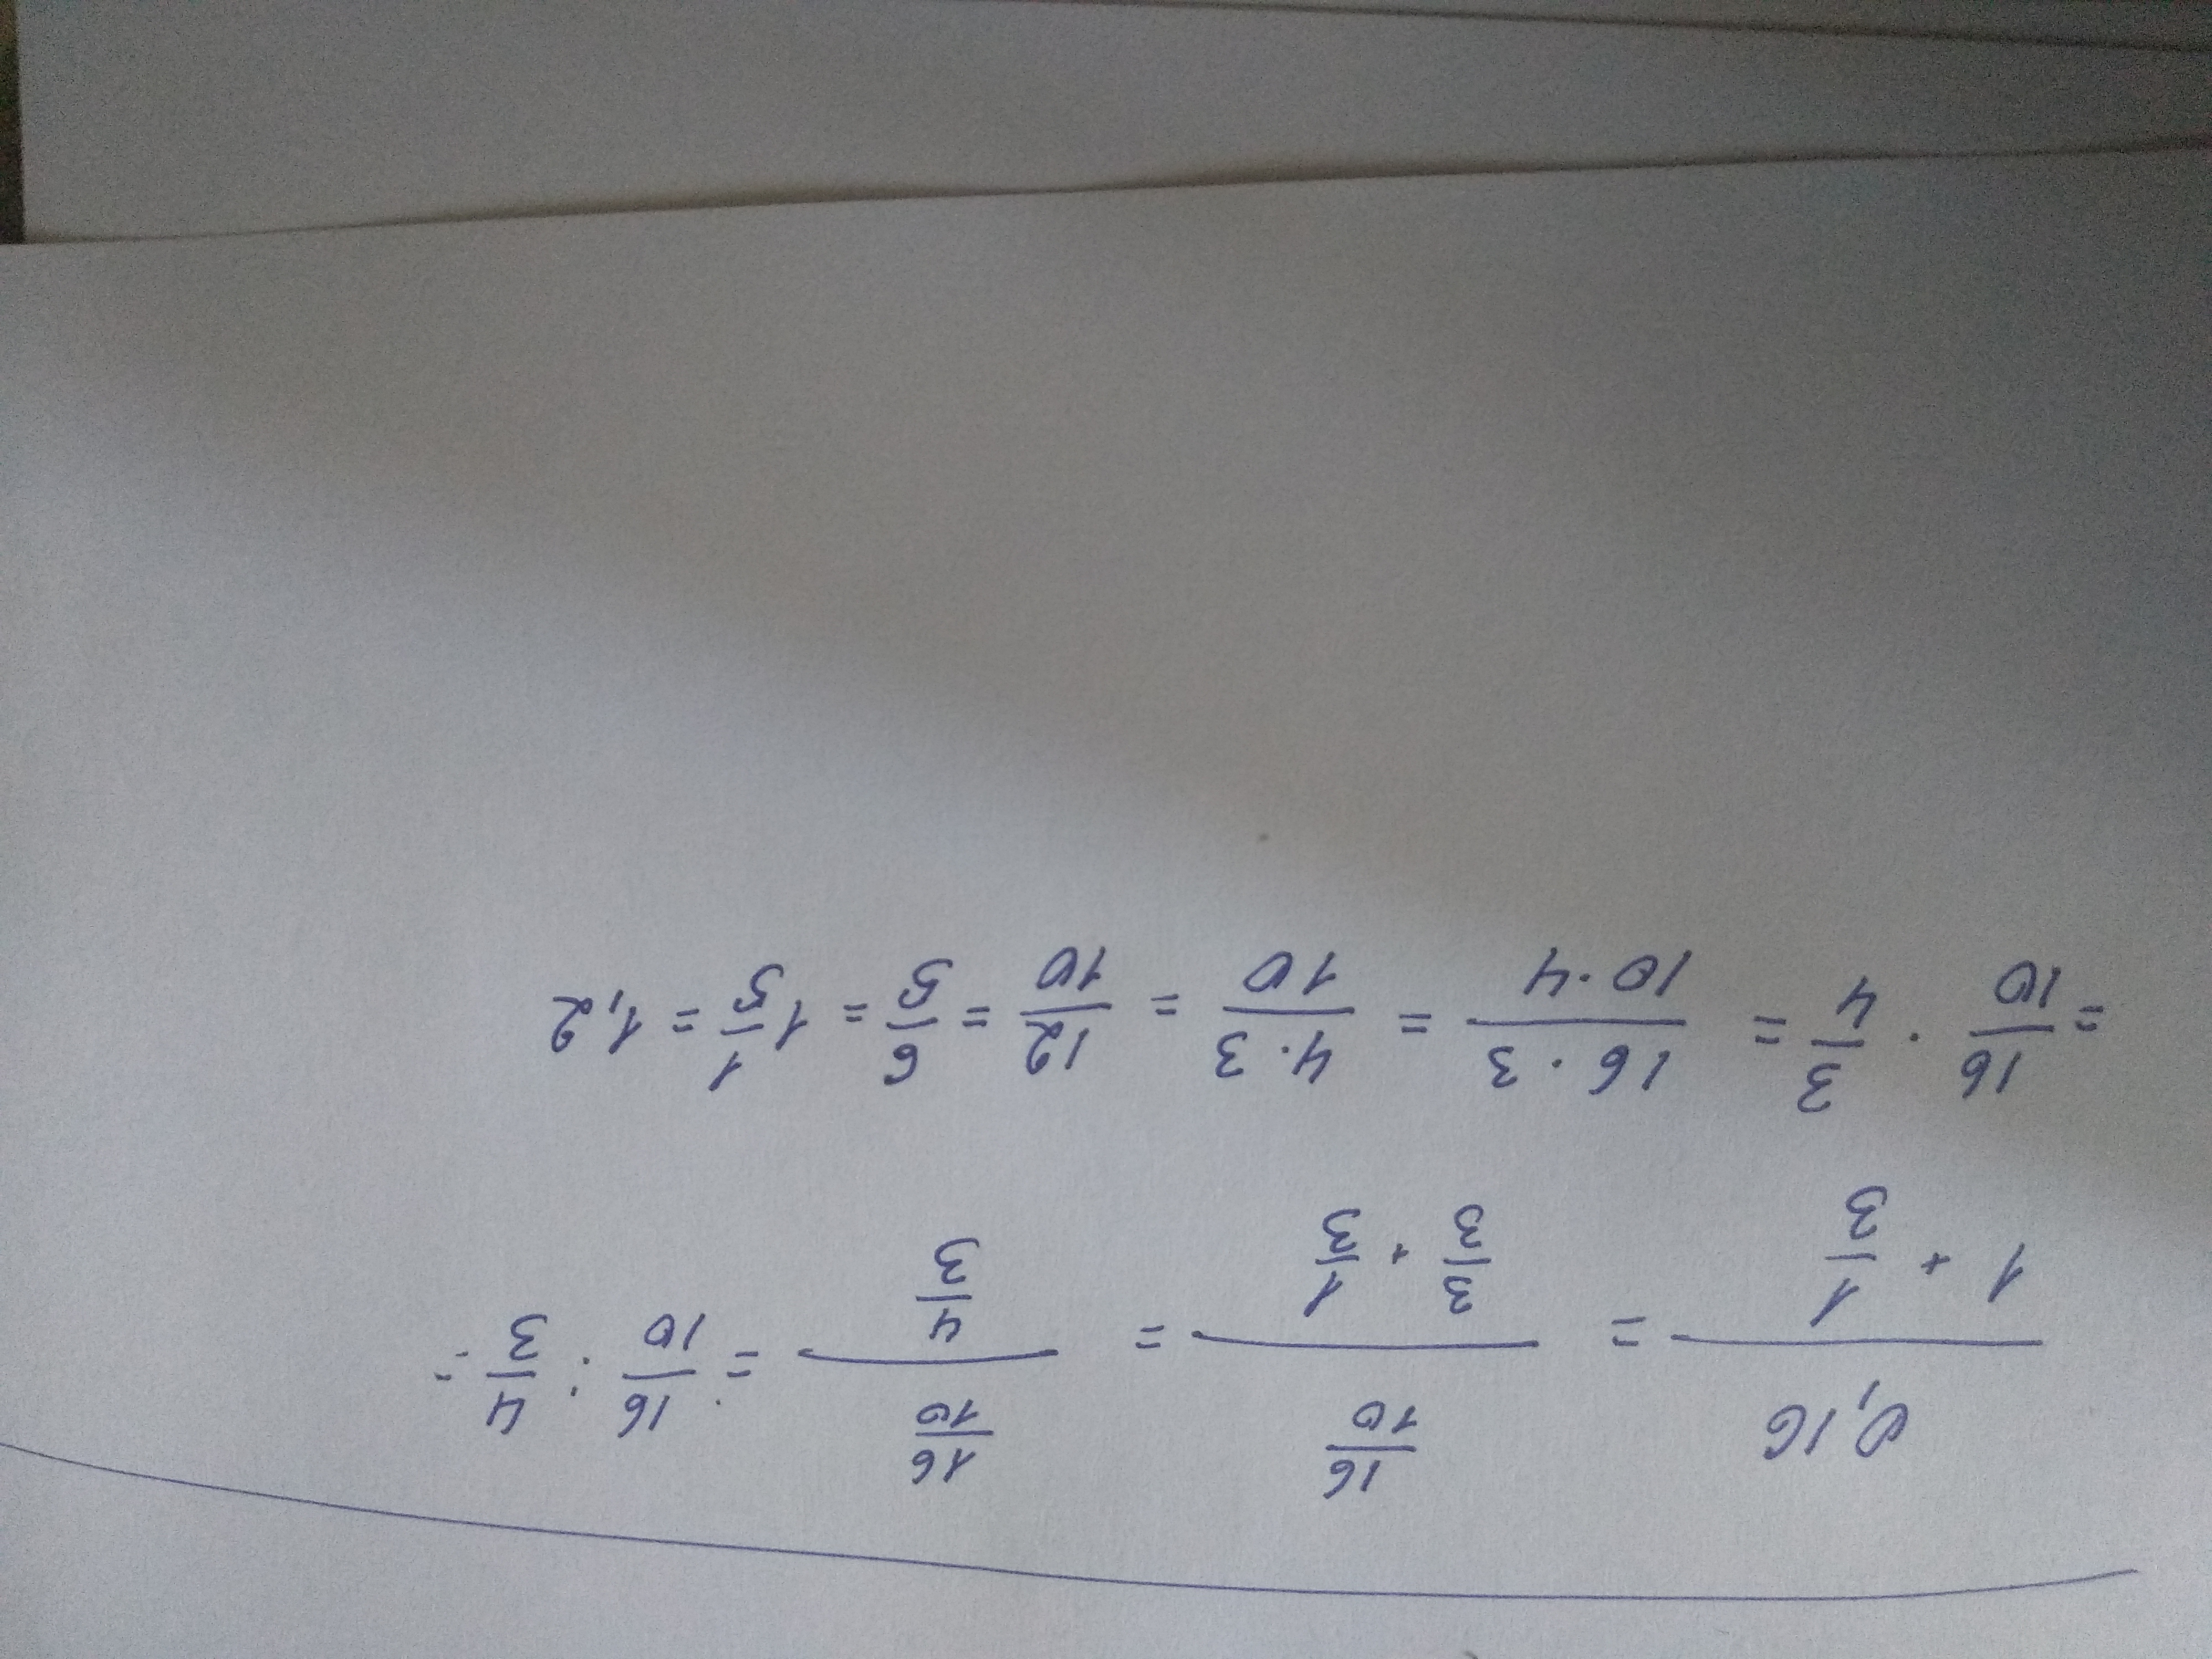 0,16 / (1 + 1/3) = (16/10) / (3/3 + 1/3) = (16/10) / (4/3) = 16/10 : 4/3 =
= 16/10 · 3/4 = (16 · 3)/(10 · 4) = (4 · 3)/10 = 12/10 = 6/5 = 1 1/5 = 1,2